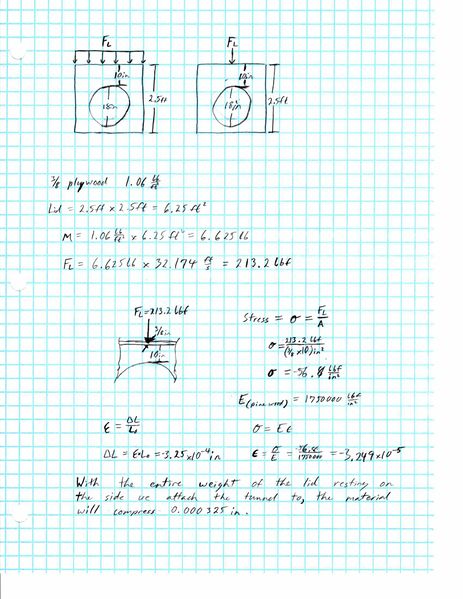 FL FL
10in 10in
18in 2.5ft 18in 2.5ft
3/8 plywood 1.06 lb/ft²
Lid = 2.5ft x 2.5ft = 6.25 ft²
M = 1.06 lb/ft² x 6.25 ft² = 6.625 lb
FL = 6.625 lb x 32.174 ft/s = 213.2 lbf
FL=213.2 lbf
3/8in
10in
Stress = σ = FL/A
σ = 213.2 lbf/(3/8 x10)in²
σ = -56.8 lbf/in²
E(pine wood) = 1750000 lbf/in²
ε = ΔL/L₀ σ = Eε
ΔL = ε·L₀ = -3.25x10⁻⁴ in ε = σ/E = -56.86/1750000 = -3.249x10⁻⁵
With the entire weight of the lid resting on
the side we attach the tunnel to, the material
will compress 0.000325 in.